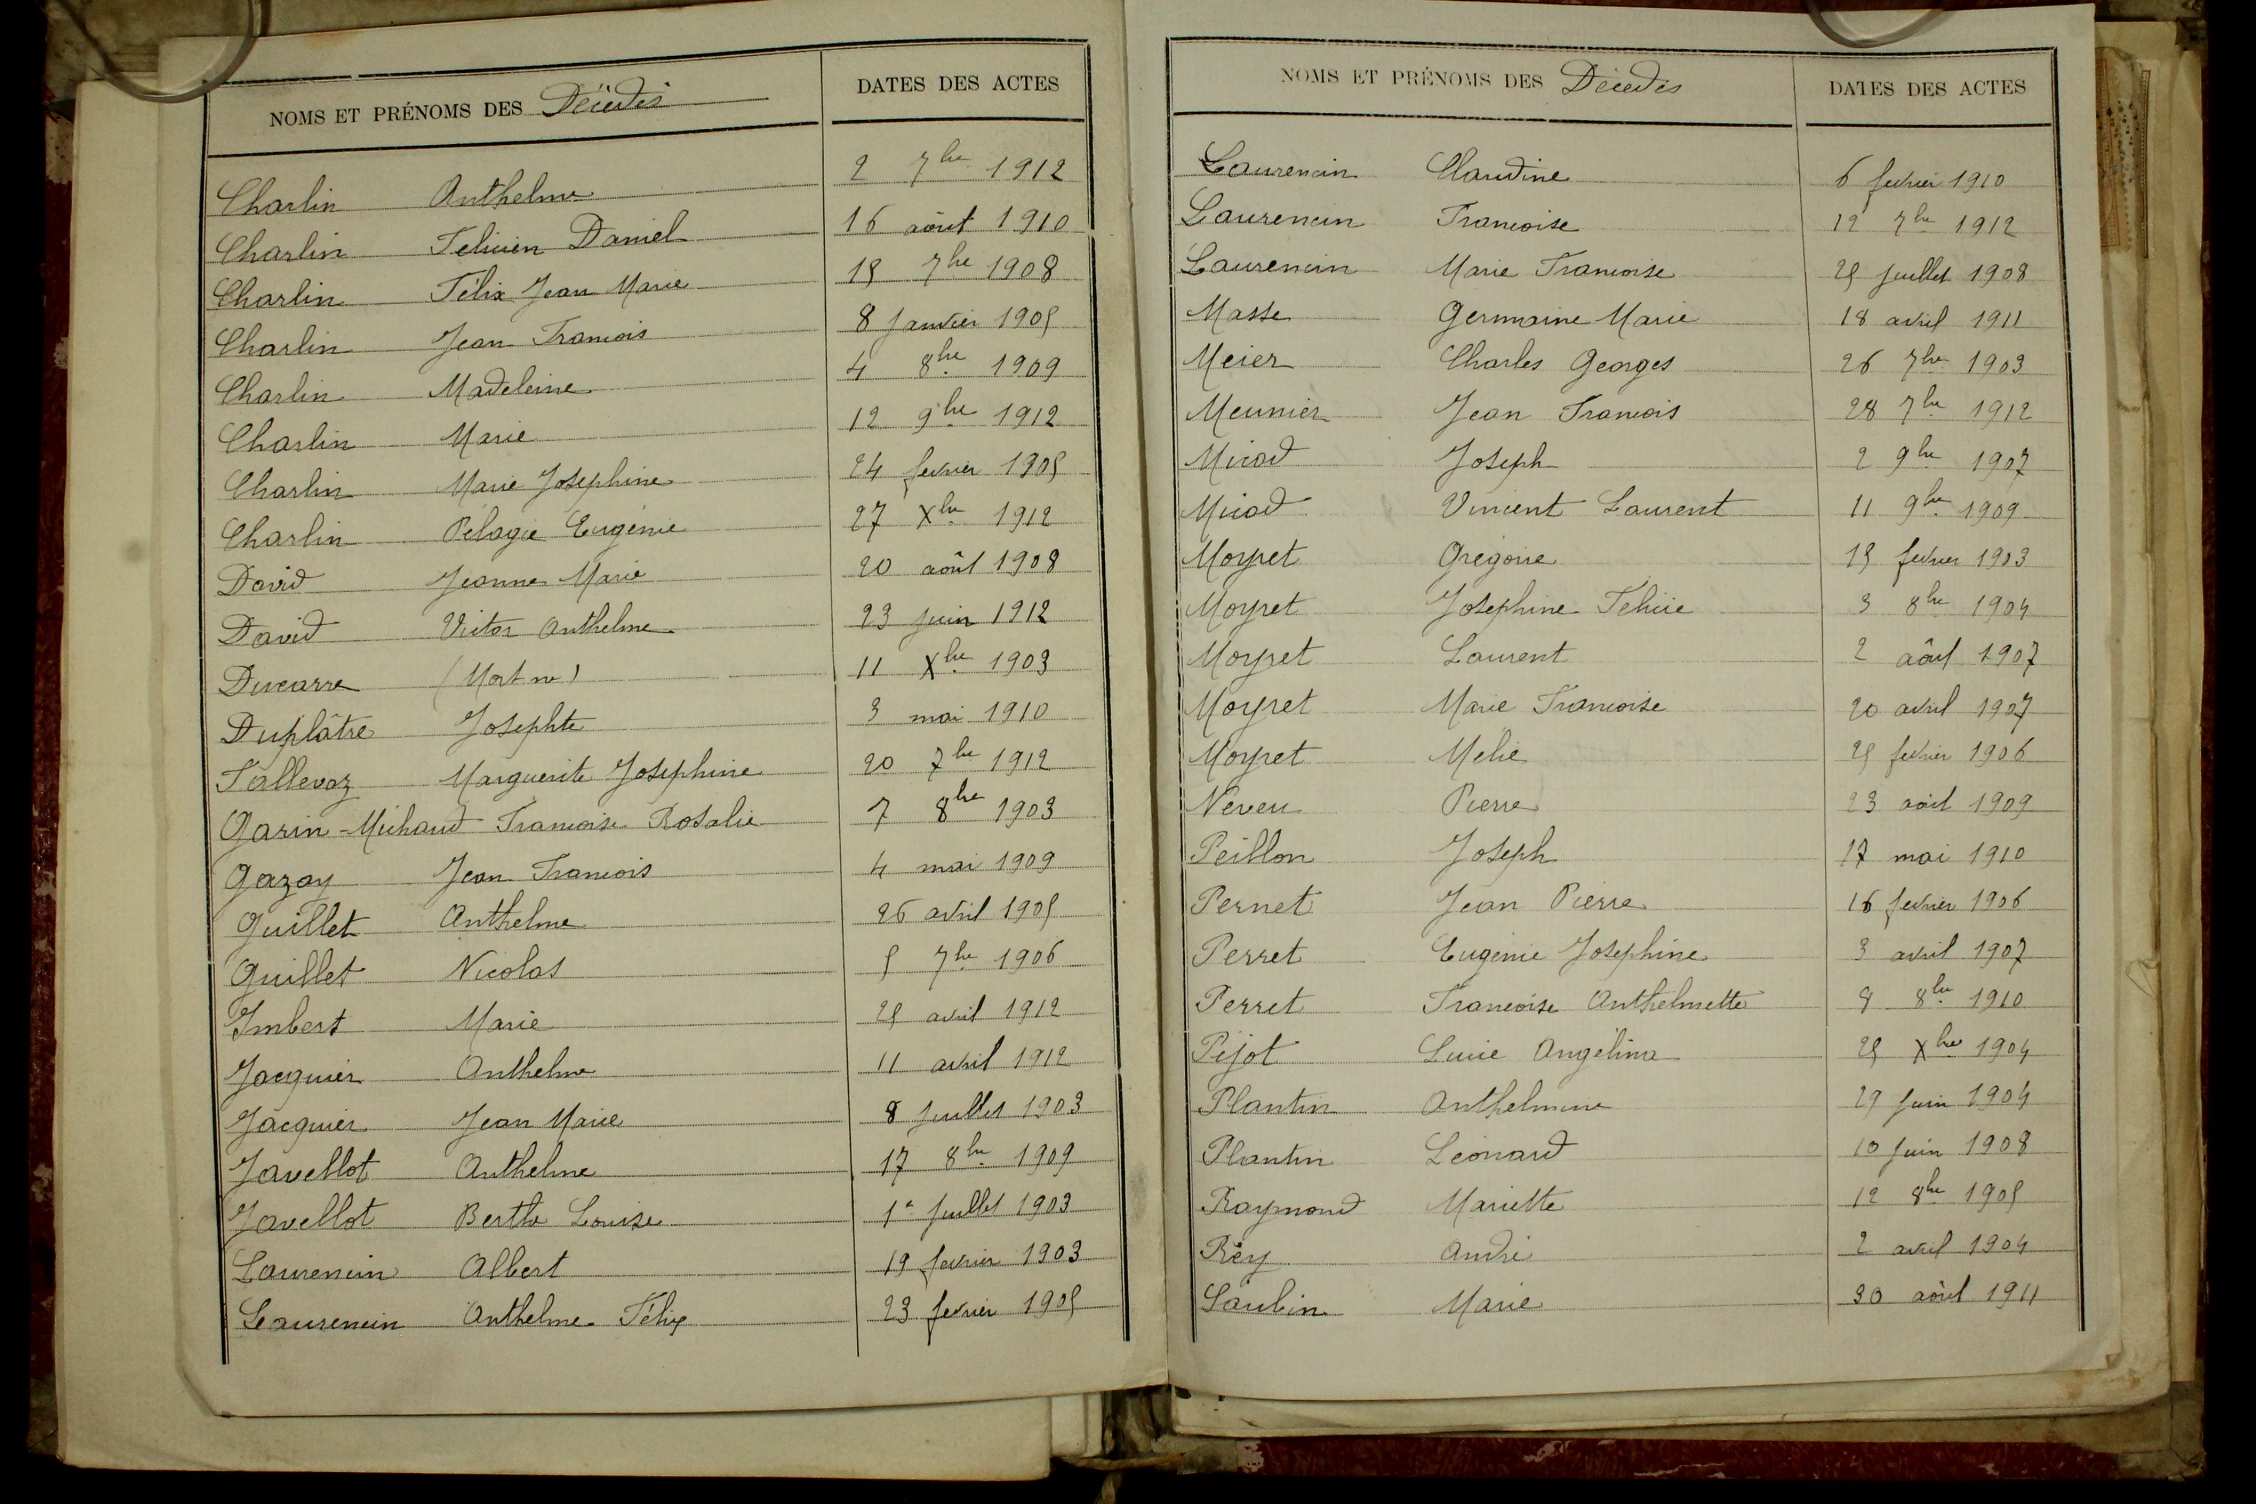 NOMS ET PRÉNOMS DES Décédés DATES DES ACTES
Charlin Anthelme 2 7bre 1912
Charlin Felicien Daniel 16 août 1910
Charlin Félix Jean Marie 15 7bre 1908
Charlin Jean Francois 8 Janvier 1905
Charlin Madeleine 4 8bre 1909
Charlin Marie 12 9bre 1912
Charlin Marie Josephine 24 fevrier 1905
Charlin Pélagie Eugénie 27 Xbre 1912
David Jeanne Marie 20 aôut 1908
David Victor Anthelme 23 juin 1912
Ducarre (Mort ne) 11 Xbre 1903
Duplâtre Josephte 3 mai 1910
Fallevoz Marguerite Josephine 20 7bre 1912
Garin-Michaud Francoise Rosalie 7 8bre 1903
Gazay Jean Francois 4 mai 1909
Guillet Anthelme 26 avril 1905
Guillet Nicolas 5 7bre 1906
Imbert Marie 25 avril 1912
Jacquier Anthelme 11 avril 1912
Jacquier Jean Marie 8 Juillet 1903
Javellot Anthelme 17 8bre 1909
Javellot Berthe Louise 1er Juillet 1903
Laurencin Albert 19 fevrier 1903
Laurencin Anthelme Félix 23 fevrier 1905
NOMS ET PRÉNOMS DES Décédés DATES DES ACTES
Laurencin Claudine 6 fevrier 1910
Laurencin Francoise 12 7bre 1912
Laurencin Marie Francoise 25 Juillet 1908
Masse Germaine Marie 18 avril 1911
Meier Charles Georges 26 7bre 1903
Meunier Jean Francois 28 7bre 1912
Micod Joseph 2 9bre 1907
Micod Vincent Laurent 11 9bre 1909
Moyret Grégoire 15 fevrier 1903
Moyret Josephine Felicie 3 8bre 1904
Moyret Laurent 2 aôut 1907
Moyret Marie Francoise 20 avril 1907
Moyret Melie 25 fevrier 1906
Neveu Pierre 23 aôut 1909
Peillon Joseph 17 mai 1910
Pernet Jean Pierre 16 fevrier 1906
Perret Eugénie Josephine 3 avril 1907
Perret Francoise Anthelmette 8 8bre 1910
Pijot Lucie Angélina 25 Xbre 1904
Plantin Anthelmine 29 Juin 1904
Plantin Léonard 10 Juin 1908
Raymond Mariette 12 8bre 1905
Rey André 2 avril 1904
Saulin Marie 30 aôut 1911